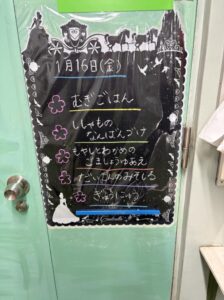 1月16日(金)
むぎごはん
ししゃもの
なんばんづけ
もやしとわかめの
ごましょうゆあえ
だいこんのみそしる
ぎゅうにゅう